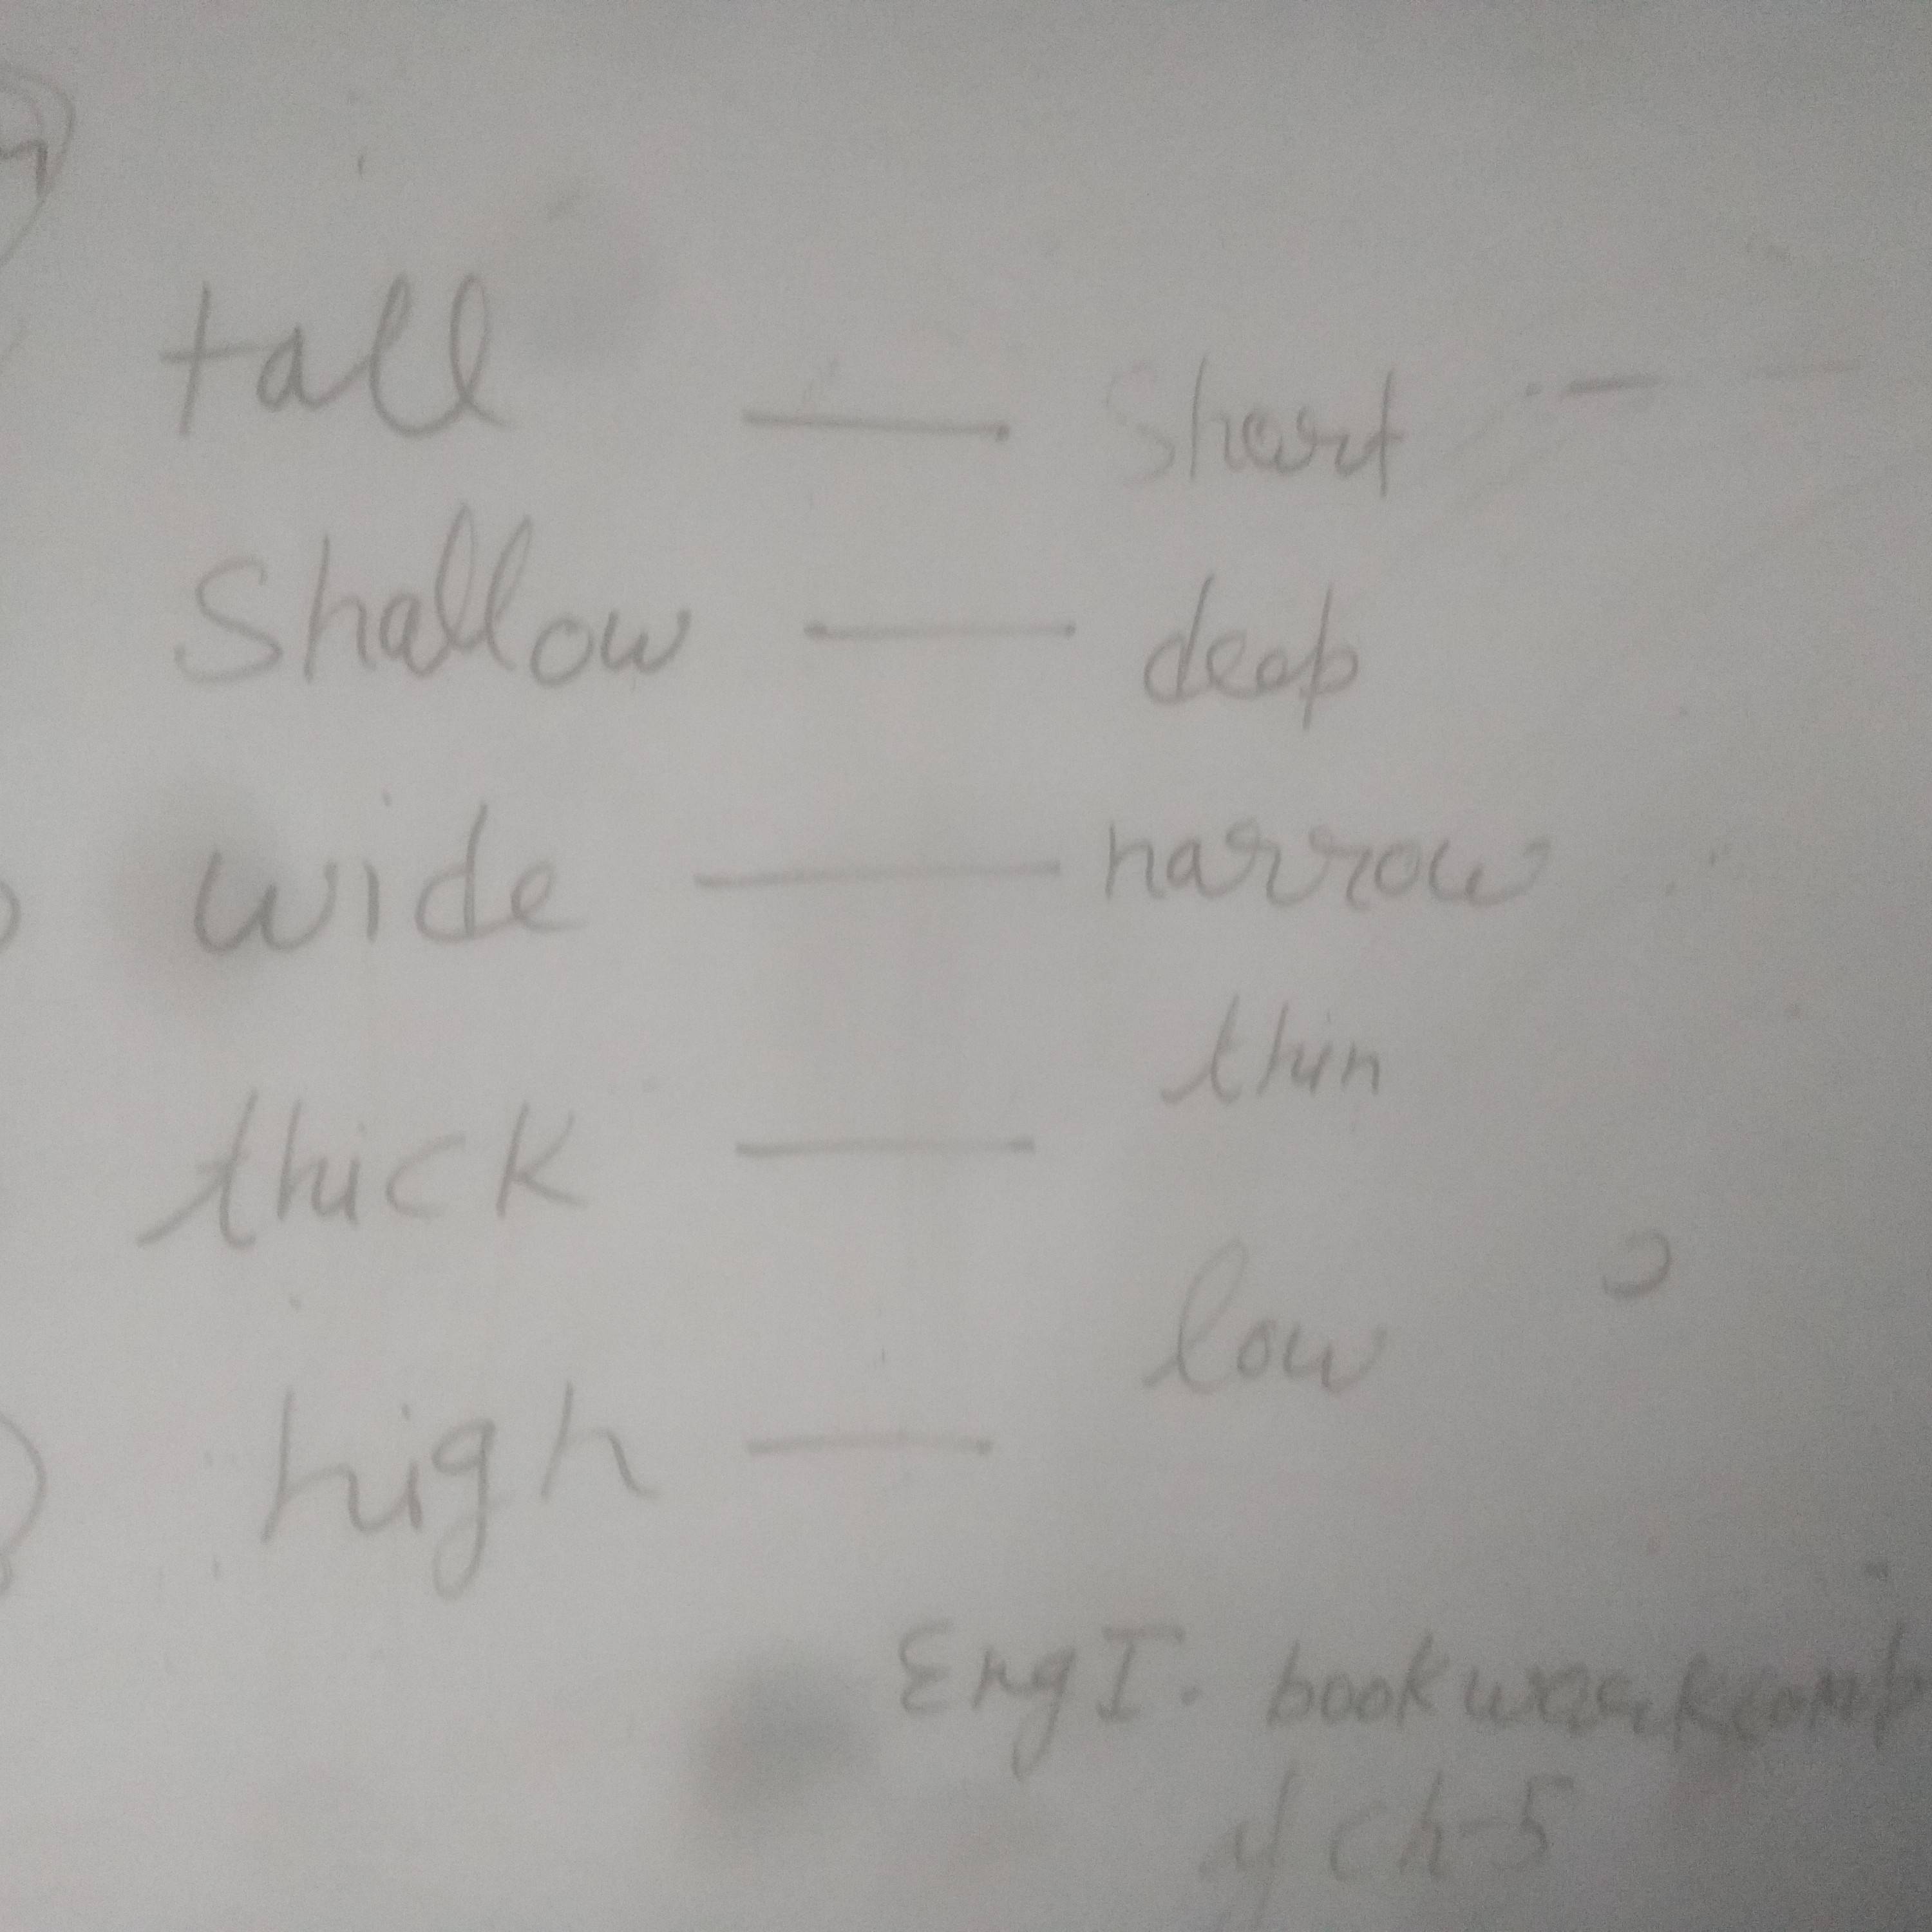 tall — short
Shallow — deep
wide — narrow
thick — thin
high — low
Eng I. book work comp
of Ch-5